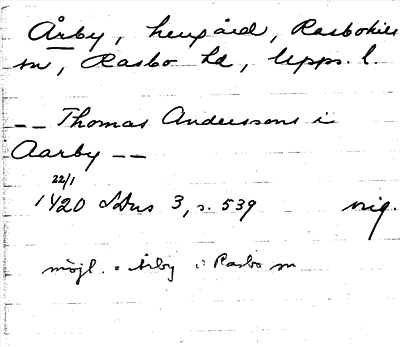 Årby, herrgård, Rasbokils
sn, Rasbo hd, Upps. l.
-- Thomas Anderssons i
Aarby --
22/1
1420 SDns 3, s. 539 orig.
möjl. = Årby i Rasbo sn